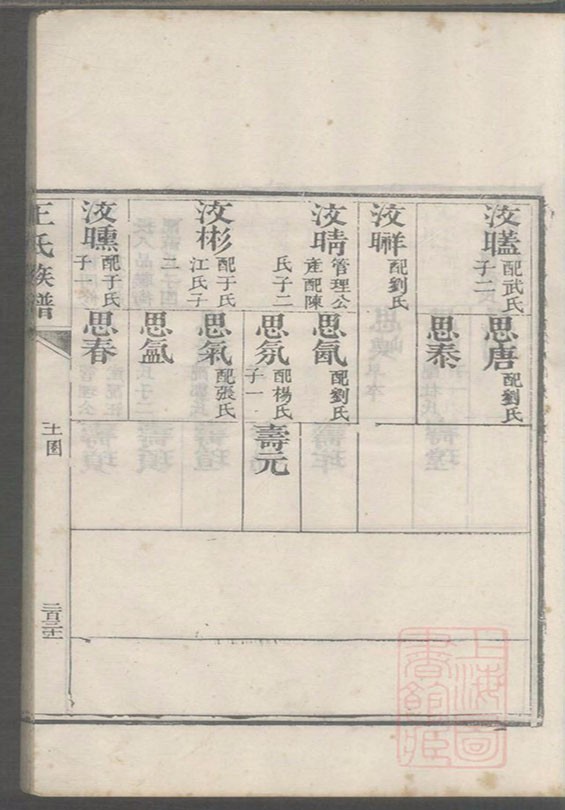 汝䁈 配武氏子二
汝䎙 配劉氏
汝晴 管理公產配陳氏子二
汝彬 配于氏江氏子三
汝曛 配于氏子一
思唐 配劉氏
思泰
思氤 配劉氏
思氛 配楊氏子一
思氣 配張氏
思氳
思春
壽元
王氏族譜